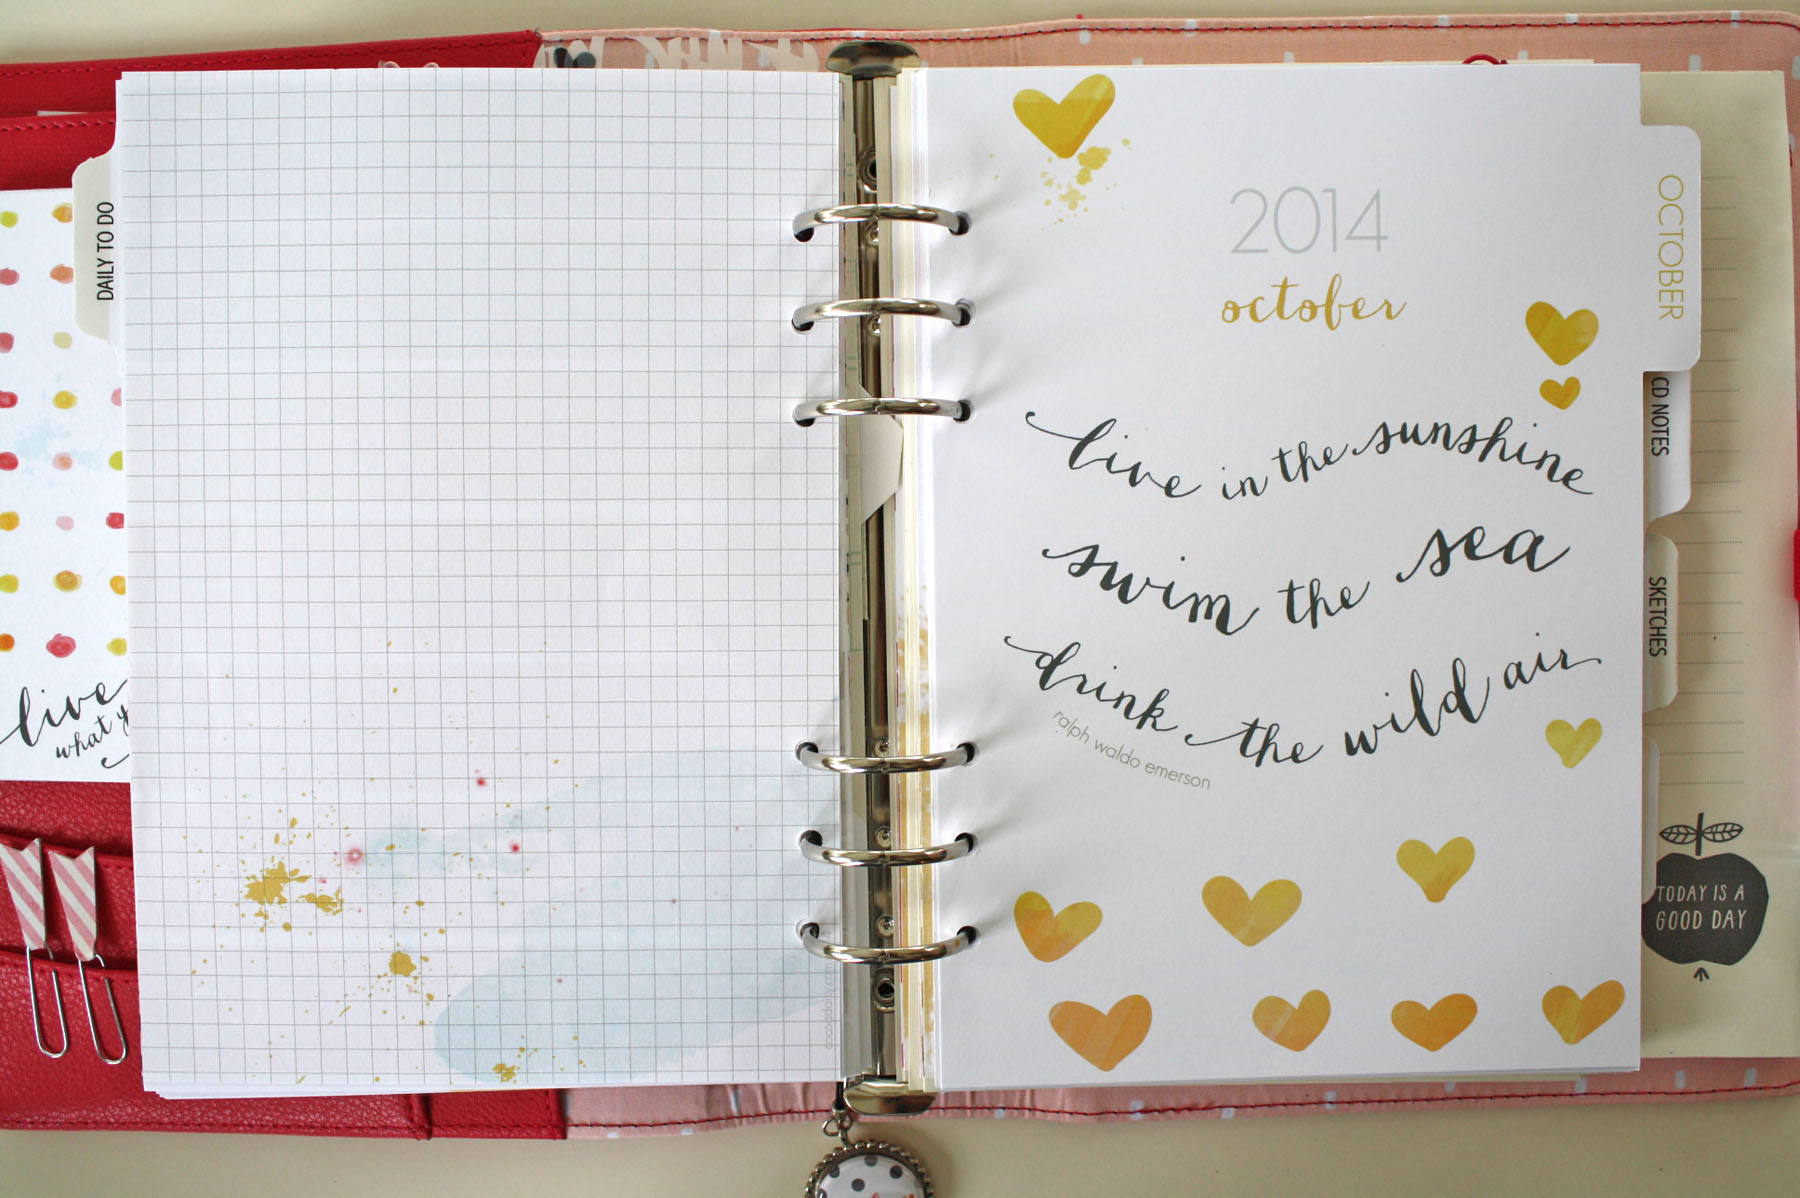 DAILY TO DO
live
what y
2014
october
live in the sunshine
swim the sea
drink the wild air
ralph waldo emerson
OCTOBER
CD NOTES
SKETCHES
TODAY IS A
GOOD DAY